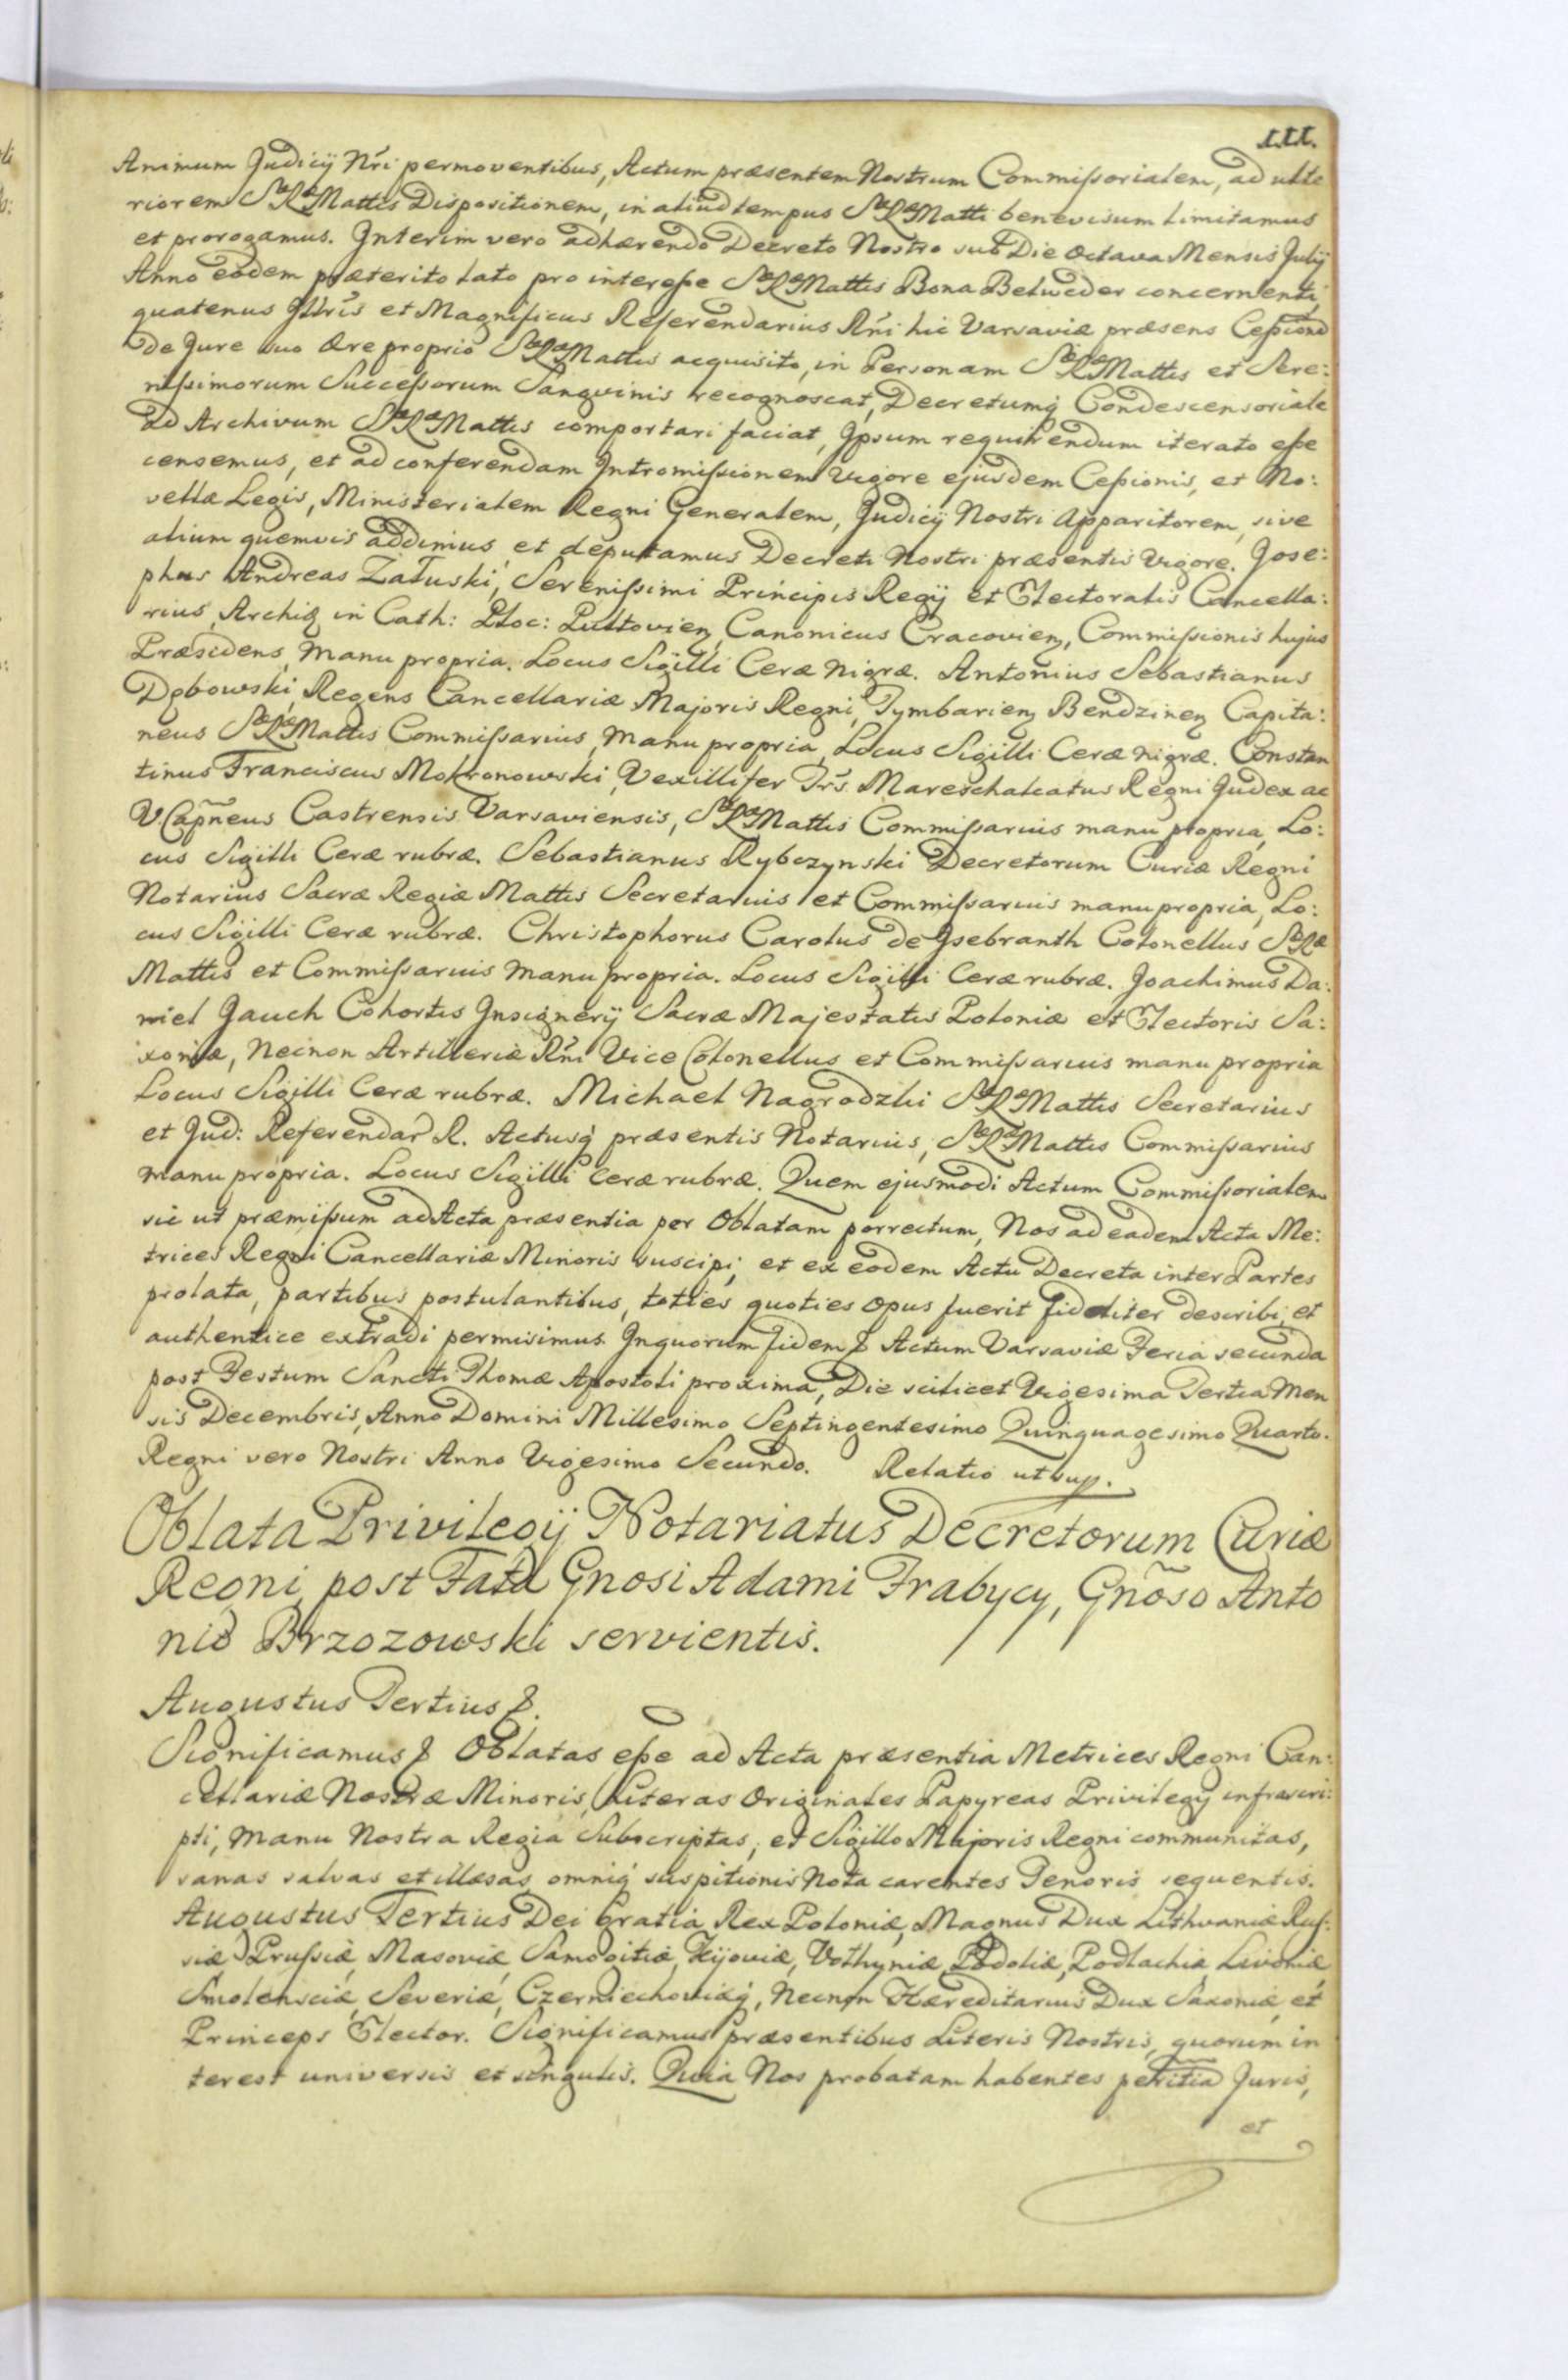 111.
Animum Judicij Nri permoventibus, Actum præsentem Nostrum Commissorialem, ad ulte
riorem SæRæMattis Dispositionem, in aliud tempus SæRæMatti benevisum limitamus
et prorogamus. Interim vero adhærendo Decreto Nostro sub Die Octava Mensis Julij
Anno eodem præterito lato pro interesse SæRæMattis Bona Belweder concernenti,
quatenus Illtris et Magnificus Referendarius Rni hic Varsaviæ præsens Cessione
de Jure suo Ære proprio SæRæMattis acquisito, in Personam SæRæMattis et Sere:
nissimorum Successorum Sangvinis recognoscat, Decretumq Condescensoriale
ad Archivum SæRæMattis comportari faciat, Ipsum requirendum iterato esse
censemus, et ad conferendam Intromissionem vigore ejusdem Cessionis, et No:
vellæ Legis, Ministerialem Regni Generalem, Judicij Nostri Apparitorem, sive
alium quemvis addimus et deputamus Decreti Nostri præsentis vigore. Jose:
phus Andreas Załuski, Serenissimi Principis Regij et Electoralis Cancella:
rius, Archid in Cath: Ploc: Pultovien, Canonicus Cracovien, Commissionis hujus
Præsidens, manu propria. Locus Sigilli Ceræ nigræ. Antonius Sebastianus
Dębowski, Regens Cancellariæ Majoris Regni, Tymbarien Bendzinen Capita:
neus SæRæMattis Commissarius, manu propria, Locus Sigilli Ceræ nigræ. Constan
tinus Franciscus Mokronowski, Vexillifer Trs. Mareschalcatus Regni Judex ac
VCapneus Castrensis Varsaviensis, SæRæMattis Commissarius manu propria, Lo:
cus Sigilli Ceræ rubræ. Sebastianus Rybczynski Decretorum Curiæ Regni
Notarius Sacræ Regiæ Mattis Secretarius et Commissarius manu propria, Lo:
cus Sigilli Ceræ rubræ. Christophorus Carolus de Isebranth Colonellus SæRæ
Mattis et Commissarius manu propria. Locus Sigilli Ceræ rubræ. Joachimus Da:
niel Jauch Cohortis Insignerij Sacræ Majestatis Poloniæ et Electoris Sa:
xoniæ, Necnon Artilleriæ Rni Vice Colonellus et Commissarius manu propria
Locus Sigilli Ceræ rubræ. Michael Nagrodzki SæRæMattis Secretarius
et Jud: Referendar R. Actusq præsentis Notarius, SæRæMattis Commissarius
manu propria. Locus Sigilli Ceræ rubræ. Quem ejusmodi Actum Commissorialem
sic ut præmissum ad Acta præsentia per Oblatam porrectum, Nos ad eadem Acta Me:
trices Regni Cancellariæ Minoris suscipi, et ex eodem Actu Decreta inter Partes
prolata, partibus postulantibus, toties quoties opus fuerit fideliter describi, et
authentice extradi permisimus. In quorum fidem Actum Varsaviæ Feria secunda
post Festum Sancti Thomæ Apostoli proxima, Die scilicet Vigesima Tertia Men
sis Decembris, Anno Domini Millesimo Septingentesimo Quinquagesimo Quarto.
Regni vero Nostri Anno Vigesimo Secundo. Relatio ut sup.
Oblata Privilegij Notariatus Decretorum Curiæ
Regni, post Fata Gnosi Adami Frabycy, Gnoso Anto
nio Brzozowski servientis.
Augustus Tertius
Significamus Oblatas esse ad Acta præsentia Metrices Regni Can:
cellariæ Nostræ Minoris, Literas Originales Papyreas Privilegij infrascri:
pti, Manu Nostra Regia Subscriptas, et Sigillo Majoris Regni communitas,
sanas salvas et illæsas, omniq suspitionis Nota carentes Tenoris sequentis.
Augustus Tertius Dei Gratia Rex Poloniæ, Magnus Dux Lithvaniæ Rus:
siæ Prussiæ, Masoviæ, Samogitiæ, Kijoviæ, Volhyniæ, Podoliæ, Podlachiæ Livoniæ
Smolensciæ, Severiæ, Czerniechoviæq, Necnon Hæreditarius Dux Saxoniæ et
Princeps Elector. Significamus præsentibus Literis Nostris, quorum in
terest universis et singulis. Quia Nos probatam habentes peritia Juris,
et